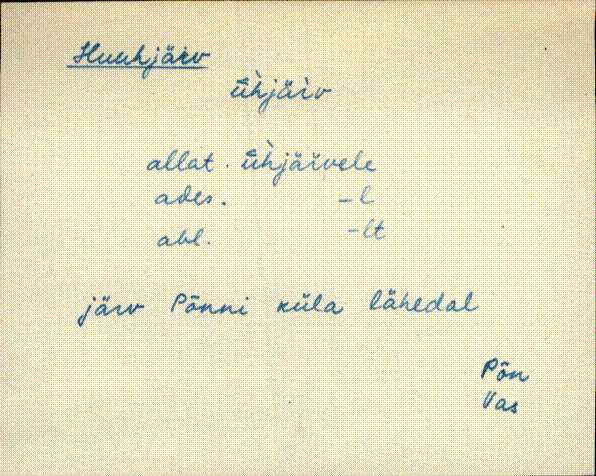 Huuhjärv
ūhjäŕv
allat. ūhjärvele
ades. -l
abl. -lt
järv Põnni küla lähedal
Põn
Vas